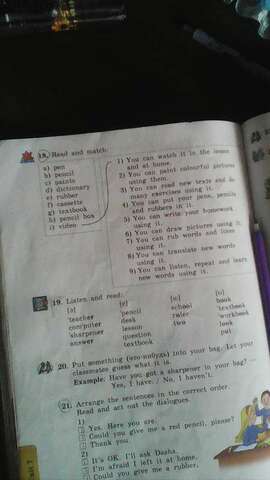 18. Read and match.
a) pen
b) pencil
c) paints
d) dictionary
e) rubber
f) cassette
g) textbook
h) pencil box
i) video
1) You can watch it in the lesson
and at home.
2) You can paint colourful pictures
using them.
3) You can read new texts and do
many exercises using it.
4) You can put your pens, pencils
and rubbers in it.
5) You can write your homework
using it.
6) You can draw pictures using it.
7) You can rub words and lines
using it.
8) You can translate new words
using it.
9) You can listen, repeat and learn
new words using it.
19. Listen and read:
[ə]
'teacher
com'puter
'sharpener
answer
[e]
pencil
desk
lesson
question
textbook
[u:]
school
ruler
two
[u]
book
'textbook
'workbook
look
put
20. Put something (что-нибудь) into your bag. Let your
classmates guess what it is.
Example: Have you got a sharpener in your bag? —
Yes, I have. / No, I haven't.
21. Arrange the sentences in the correct order.
Read and act out the dialogues.
1)
Yes. Here you are.
Could you give me a red pencil, please?
Thank you.
2)
It's OK. I'll ask Dasha.
I'm afraid I left it at home.
Could you give me a rubber,